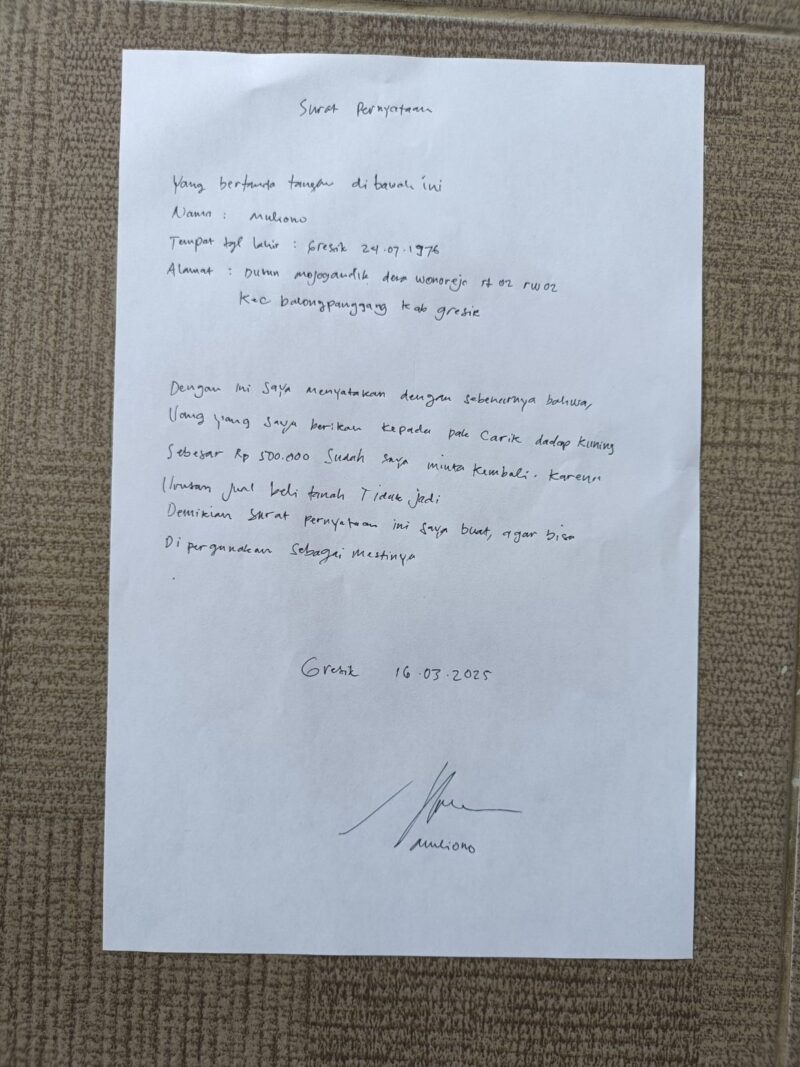 Surat Pernyataan
Yang bertanda tangan dibawah ini
Nama : Muliono
Tempat tgl lahir : Gresik 24.07.1976
Alamat : Dusun mojogandik desa wonorejo rt 02 rw 02
Kec balongpanggang kab gresik
Dengan ini saya menyatakan dengan sebenarnya bahwa,
Uang yang saya berikan kepada pak Carik dadap kuning
Sebesar Rp 500.000 Sudah saya minta kembali. Karena
Urusan Jual beli tanah Tidak jadi
Demikian surat pernyataan ini saya buat, agar bisa
Di pergunakan sebagai mestinya
Gresik 16.03.2025
Muliono